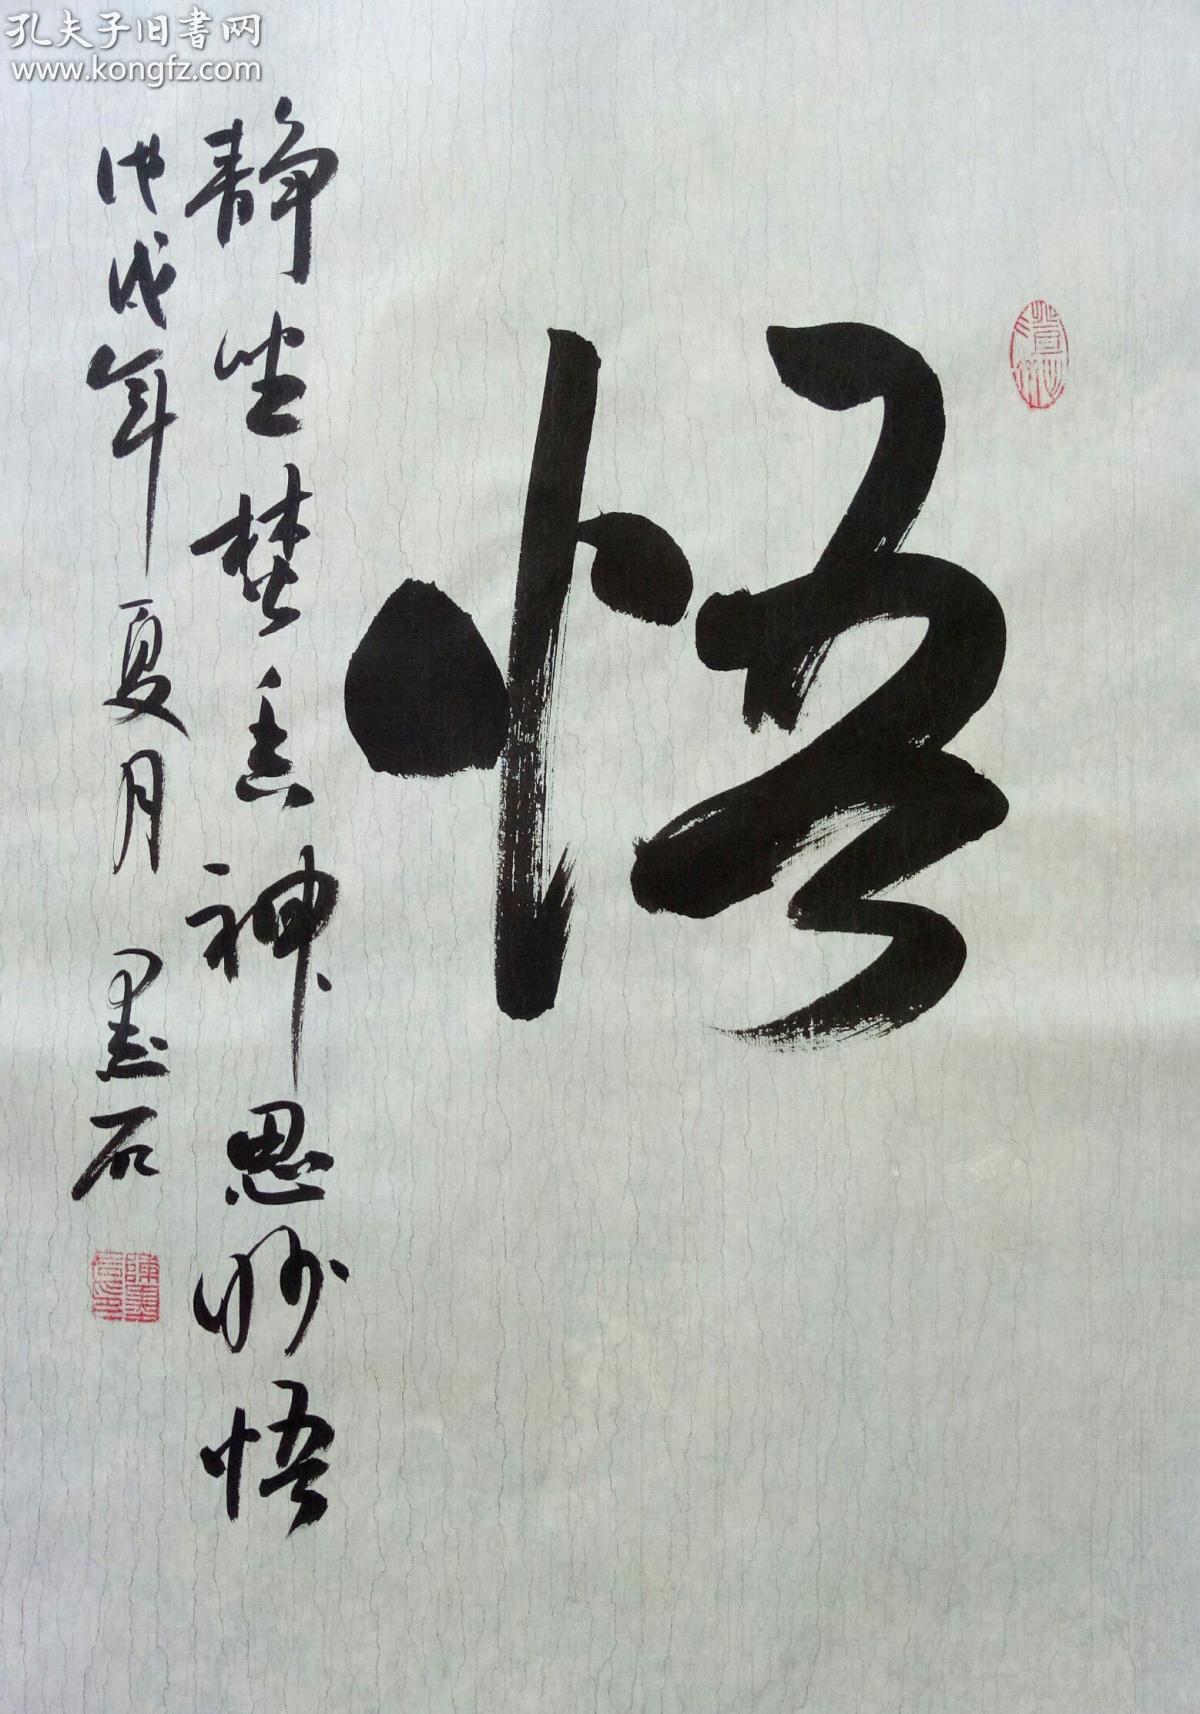 孔夫子旧書网
www.kongfz.com
悟
静坐焚香神思妙悟
戊戌年夏月墨石